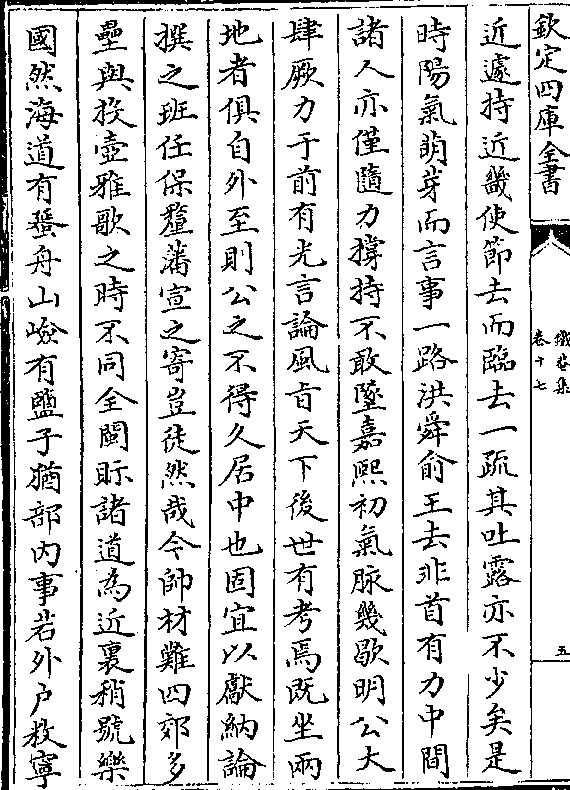 欽定四庫全書
鐵菴集
卷十七
五
近遽持近畿使節去而臨去一疏其吐露亦不少矣是
時陽氣萌芽而言事一路洪舜俞王去非首有力中間
諸人亦僅隨力撐持不敢墜嘉熙初氣脉幾歇明公大
肆厥力于前有光言論風旨天下後世有考焉既坐兩
地者俱自外至則公之不得久居中也固宜以獻納論
撰之班任保釐藩宣之寄豈徒然哉今帥材難四郊多
壘與投壺雅歌之時不同全閩眎諸道為近裏稍號樂
國然海道有蜑舟山嶮有鹽子猶部內事若外户敉寧